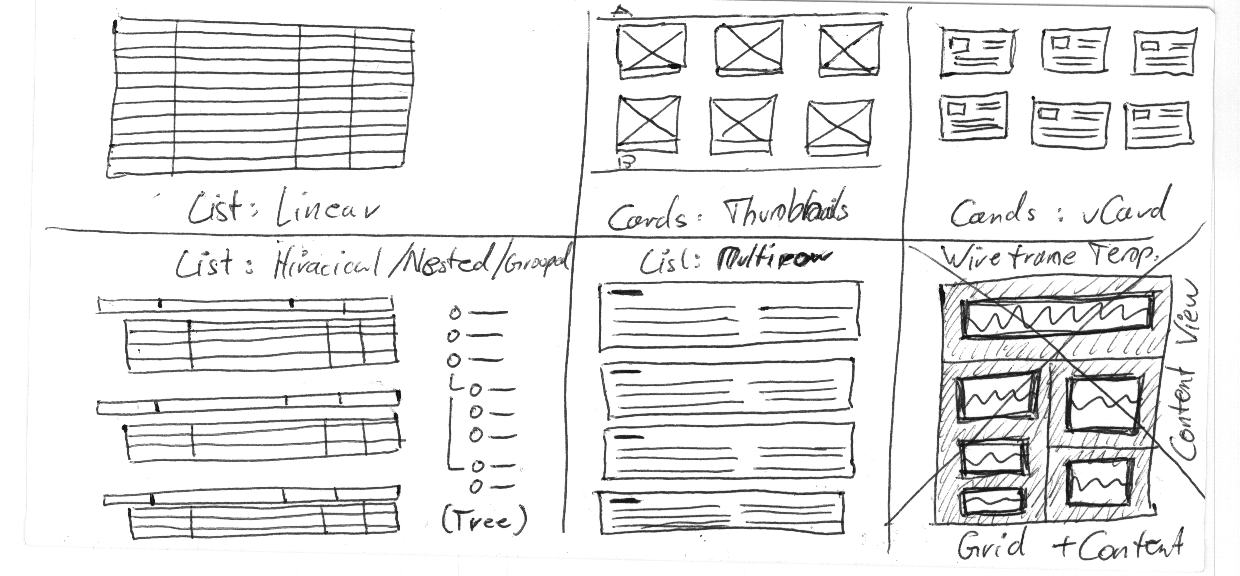 A
B
List: Linear
Cards: Thumbnails
Cards: vCard
List: Hiracical/Nested/Grouped
List: Multirow
Wireframe Temp.
Content View
(Tree)
Grid + Content